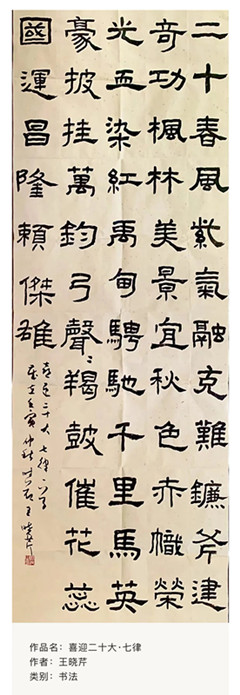 二十春風紫氣融克難鐮斧建
奇功楓林美景宜秋色赤幟榮
光血染紅禹甸騁馳千里馬英
豪披挂萬鈞弓聲〻羯鼓催花蕊
國運昌隆賴傑雄
喜迎二十大七律一首
歲在壬寅仲秋 王晓芹
作品名：喜迎二十大·七律
作者：王晓芹
类别：书法